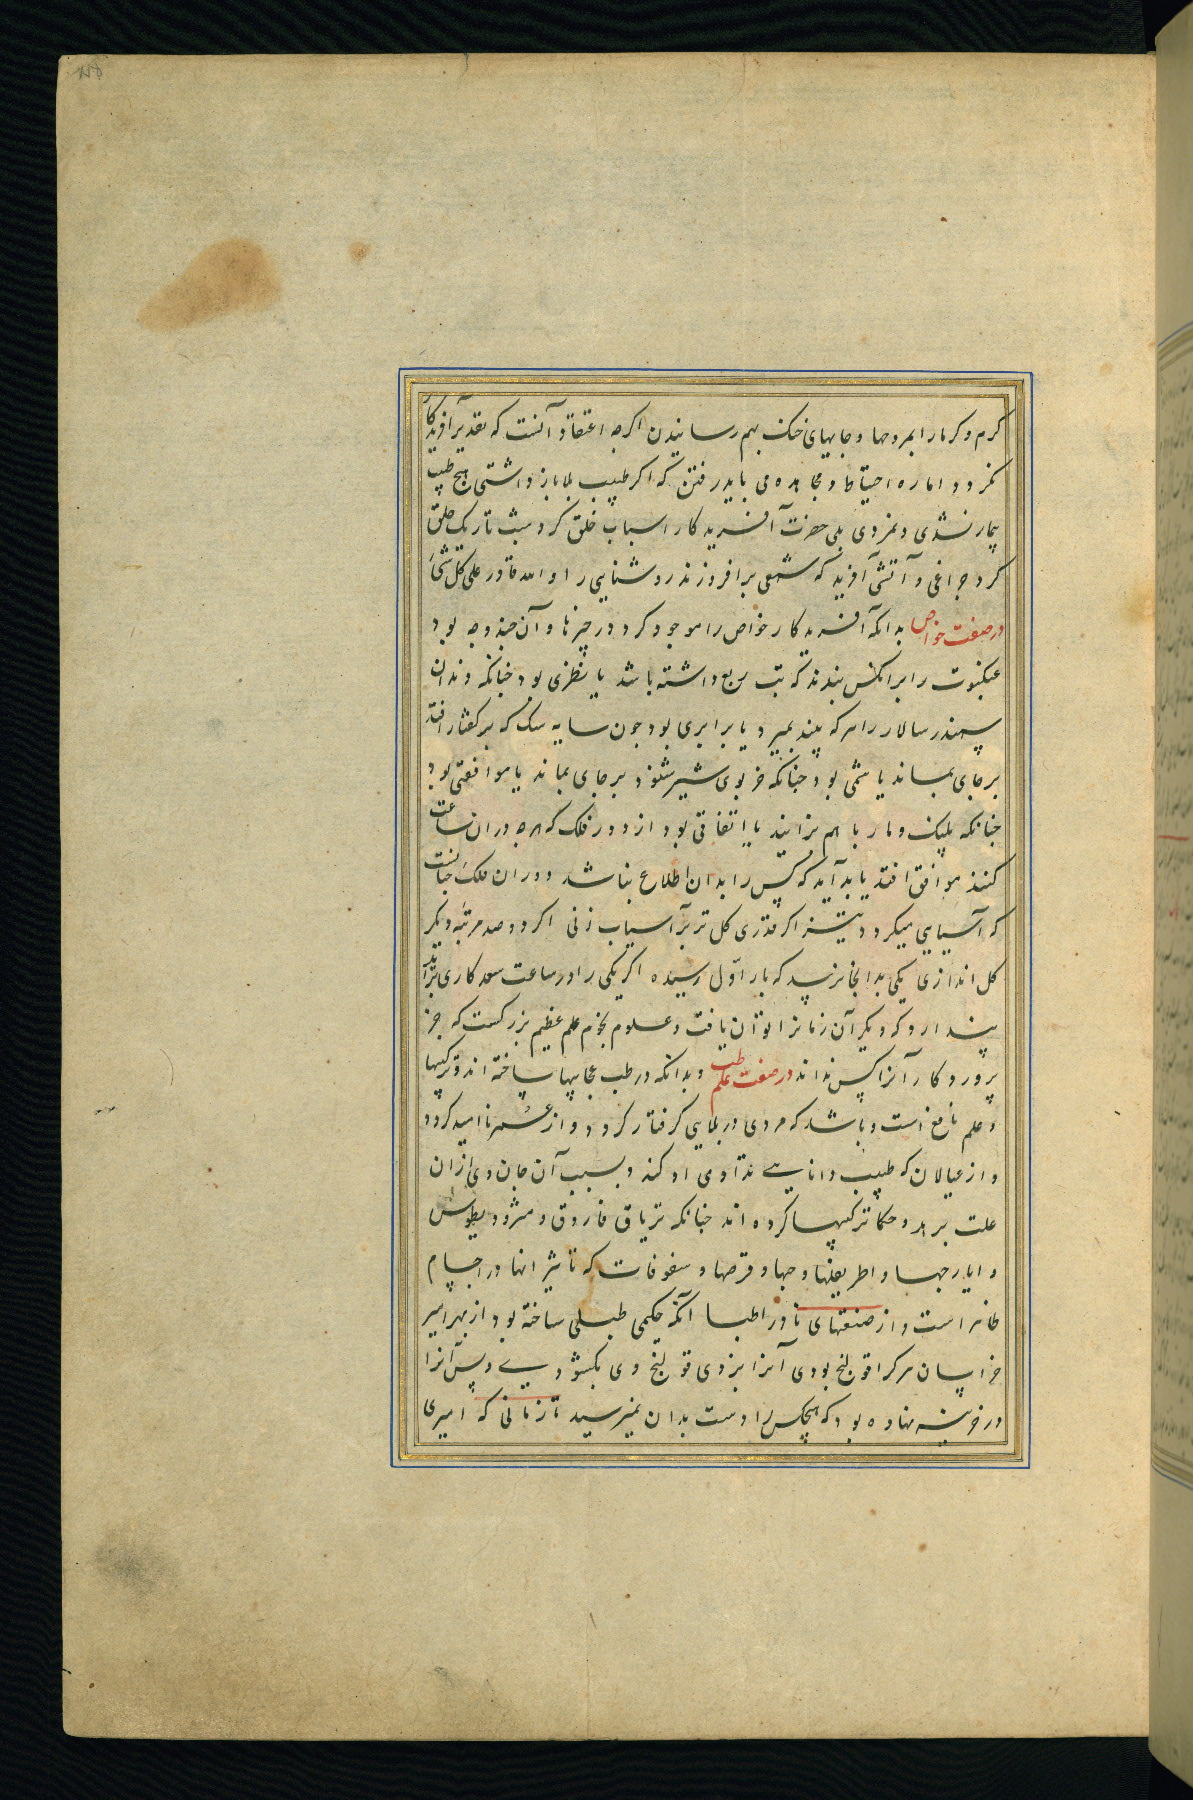 کرم و کرمارا بمروحها و جایهای خنک بهم رسانیدن اکرچه اعتقاد آنست که تقدیر آفریدکار
نکردد اما ره احتیاط و مجاهده می باید رفتن که اکر طبیب بلا باز داشتی هیچ طبیب
بیمار نشدی و نمردی بلی حضرت آفریدکار اسباب خلق کرد شب تاریک خلق
کرد چراغی و آتشی آفرید که شمعی برافروزند روشنایی را والله قادر علی کل شئ
در صفت خواص بدانکه آفریدکار خواص را موجود کرد در چیزها و آن چند وجه بود
عنکبوت را بر آنکس بندند که تب ربع داشته باشد یا نظری بود چنانکه دندان
سپندر سالار را هر که بیند بمیرد یا برابری بود چون سایه سک که بر کفتار افتد
بر جای بماند یا شمی بود چنانکه خر بوی شیر شنود بر جای بماند یا موافقتی بود
چنانکه پلنک و مار با هم بزایند یا اتفاقی بود از دور فلک که هرچه دران ساعت
کنند موافق افتد یا بدآید که کس را بدان اطلاع نباشد و دوران فلک چنانست
که آسیایی میکردد تیز اکر قدری کل تر بر آسیاب زنی اکر دو صد مرتبه دیکر
کل اندازی یکی بدانجا نرسد که بار اول رسیده اکر یکی را در ساعت سعد کاری برآید
پندارد که دیکر آن زمانرا توان یافت و علوم نجوم علم عظیم بزرکست که جز
پروردکار آنرا کس نداند در صفت علم طب و بدانکه در طب عجایبها ساخته اند و ترکیبها
و علم نافع است و باشد که مردی در بلایی کرفتار کردد و از عمر نا امید کردد
و از عیالان که طبیب دانایی تداوی او کند و بسبب آن جان وی ازان
علت برهد و حکما ترکیبها کرده اند چنانکه تریاق فاروق و مثرودیطوس
و ایارجها و اطریفلها و حبها و قرصها و سفوفات که تاثیر آنها در اجسام
ظاهر است و از صنعتهای نادر اطبا آنکه حکیمی طبلی ساخته بود از بهر امیر
خراسان هر کرا قولنج بودی آنرا بزدی قولنج وی بکشودی و پس آنرا
در خزینه نهاده بود که هیچکس را دست بدان نمیرسید تا زمانی که امیری